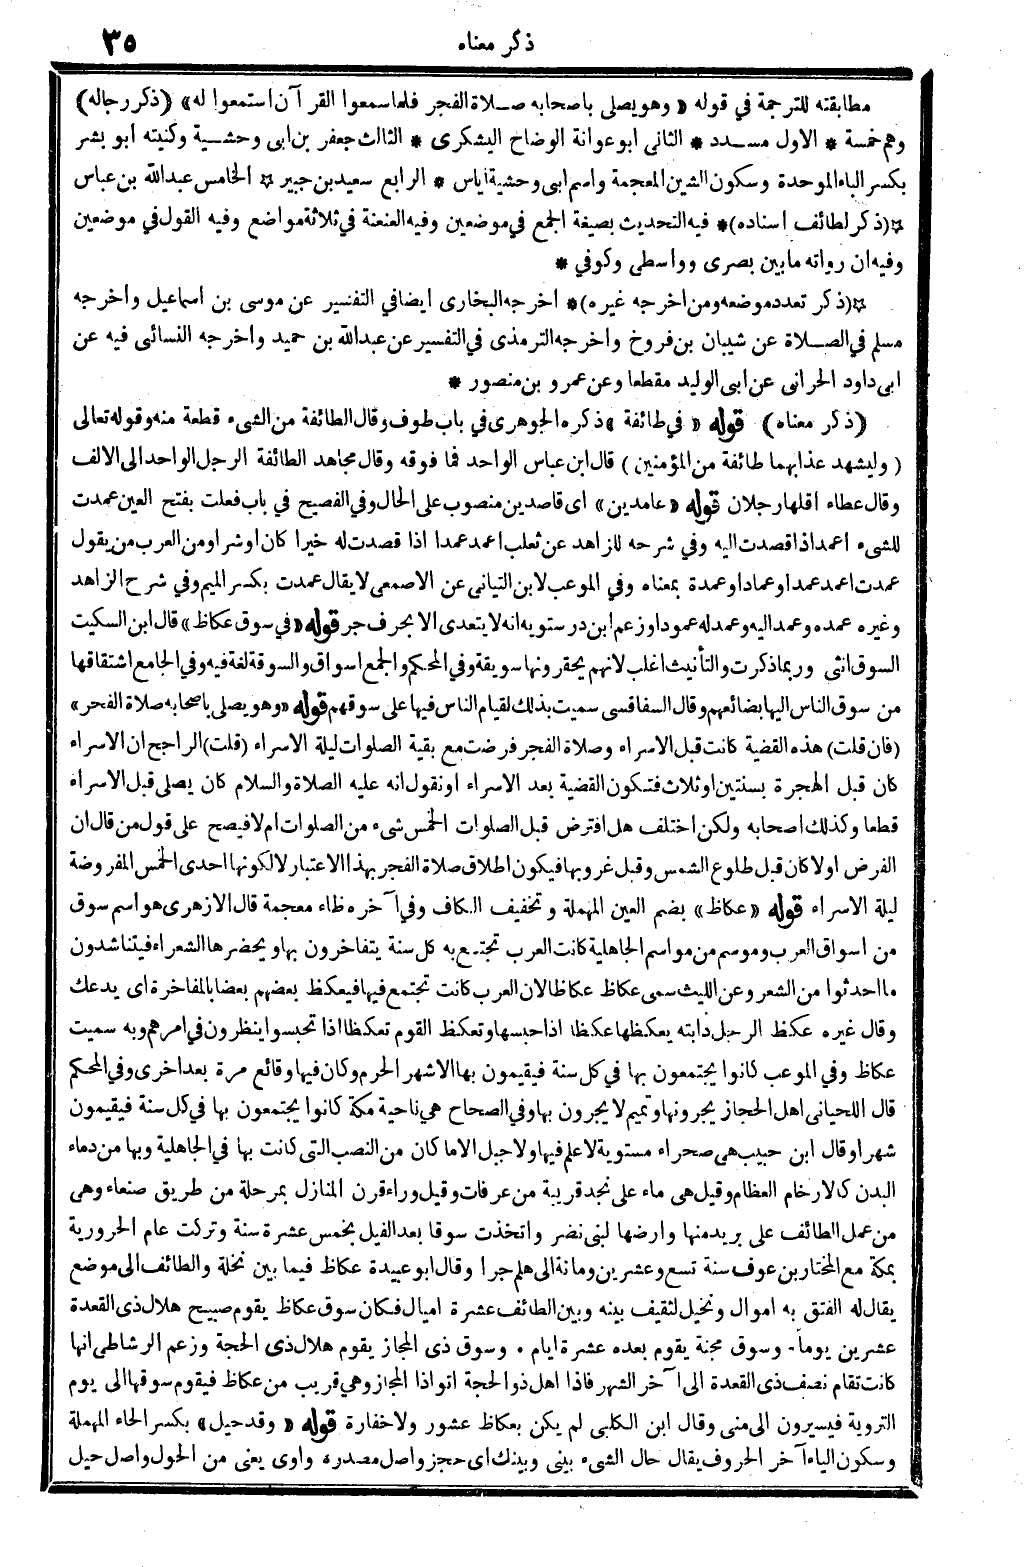 ذكر معناه
٣٥
مطابقته للترجمة في قوله « وهو يصلى باصحابه صلاة الفجر فلما سمعوا القرآن استمعوا له» (ذكر رجاله)
وهم خمسة * الاول مسدد * الثانى ابو عوانة الوضاح اليشكرى * الثالث جعفر بن ابى وحشية وكنيته ابو بشر
بكسر الباء الموحدة وسكون الشين المعجمة واسم ابى وحشية اياس * الرابع سعيد بن جبير * الخامس عبدالله بن عباس
*(ذكر لطائف اسناده)* فيه التحديث بصيغة الجمع في موضعين وفيه العنعنة في ثلاثة مواضع وفيه القول في موضعين
وفيه ان رواته ما بين بصرى وواسطى وكوفي *
*(ذكر تعدد موضعه ومن اخرجه غيره)* اخرجه البخارى ايضا في التفسير عن موسى بن اسماعيل واخرجه
مسلم في الصلاة عن شيبان بن فروخ واخرجه الترمذى في التفسير عن عبدالله بن حميد واخرجه النسائى فيه عن
ابى داود الحرانى عن ابى الوليد مقطعا وعن عمرو بن منصور *
(ذكر معناه) قوله « في طائفة » ذكره الجوهرى في باب طوف وقال الطائفة من الشىء قطعة منه وقوله تعالى
( وليشهد عذابهما طائفة من المؤمنين ) قال ابن عباس الواحد فما فوقه وقال مجاهد الطائفة الرجل الواحد الى الالف
وقال عطاء اقلها رجلان قوله «عامدين» اى قاصدين منصوب على الحال وفي الفصيح في باب فعلت بفتح العين عمدت
للشىء اعمد اذا قصدت اليه وفي شرحه للزاهد عن ثعلب اعمد عمدا اذا قصدت له خيرا كان او شرا ومن العرب من يقول
عمدت اعمد عمدا وعمادا وعمدة بمعناه وفي الموعب لابن التيانى عن الاصمعى لا يقال عمدت بكسر الميم وفي شرح الزاهد
وغيره عمده وعمد اليه وعمد له عمودا وزعم ابن درستويه انه لا يتعدى الا بحرف جر قوله «في سوق عكاظ» قال ابن السكيت
السوق انثى وربما ذكرت والتأنيث اغلب لانهم يحقرونها سويقة وفي المحكم والجمع اسواق والسوقة لغة فيه وفي الجامع اشتقاقها
من سوق الناس اليها بضائعهم وقال السفاقسى سميت بذلك لقيام الناس فيها على سوقهم قوله «وهو يصلى باصحابه صلاة الفجر»
(فان قلت) هذه القضية كانت قبل الاسراء وصلاة الفجر فرضت مع بقية الصلوات ليلة الاسراء (قلت) الراجح ان الاسراء
كان قبل الهجرة بسنتين او ثلاث فتكون القضية بعد الاسراء او نقول انه عليه الصلاة والسلام كان يصلى قبل الاسراء
قطعا وكذلك اصحابه ولكن اختلف هل افترض قبل الصلوات الخمس شىء من الصلوات ام لا فيصح على قول من قال ان
الفرض اولا كان قبل طلوع الشمس وقبل غروبها فيكون اطلاق صلاة الفجر بهذا الاعتبار لا لكونها احدى الخمس المفروضة
ليلة الاسراء قوله «عكاظ» بضم العين المهملة وتخفيف الكاف وفي آخره ظاء معجمة قال الازهرى هو اسم سوق
من اسواق العرب وموسم من مواسم الجاهلية كانت العرب تجتمع به كل سنة يتفاخرون بها ويحضرها الشعراء فيتناشدون
ما احدثوا من الشعر وعن الليث سمى عكاظ عكاظا لان العرب كانت تجتمع فيها فيعكظ بعضهم بعضا بالمفاخرة اى يدعك
وقال غيره عكظ الرجل دابته يعكظها عكظا اذا حبسها وتعكظ القوم تعكظا اذا تحبسوا ينظرون في امرهم وبه سميت
عكاظ وفي الموعب كانوا يجتمعون بها في كل سنة فيقيمون بها الاشهر الحرم وكان فيها وقائع مرة بعد اخرى وفي المحكم
قال اللحيانى اهل الحجاز يجرونها وتميم لا يجرون بها وفي الصحاح هى ناحية مكة كانوا يجتمعون بها في كل سنة فيقيمون
شهرا وقال ابن حبيب هى صحراء مستوية لا علم فيها ولا جبل الا ما كان من النصب التى كانت بها في الجاهلية وبها من دماء
البدن كالارخام العظام وقيل هى ماء على نجد قريبة من عرفات وقيل وراء قرن المنازل بمرحلة من طريق صنعاء وهى
من عمل الطائف على بريد منها وارضها لبنى نضر واتخذت سوقا بعد الفيل بخمس عشرة سنة وتركت عام الحرورية
بمكة مع المختار بن عوف سنة تسع وعشرين ومائة الى هلم جرا وقال ابو عبيدة عكاظ فيما بين نخلة والطائف الى موضع
يقال له الفتق به اموال ونخيل لثقيف بينه وبين الطائف عشرة اميال فكان سوق عكاظ يقوم صبيح هلال ذى القعدة
عشرين يوما. وسوق مجنة يقوم بعده عشرة ايام . وسوق ذى المجاز يقوم هلال ذى الحجة وزعم الرشاطى انها
كانت تقام نصف ذى القعدة الى آخر الشهر فاذا اهل ذو الحجة اتوا ذا المجاز وهى قريب من عكاظ فيقوم سوقها الى يوم
التروية فيسيرون الى منى وقال ابن الكلبى لم يكن بعكاظ عشور ولا خفارة قوله « وقد حيل» بكسر الحاء المهملة
وسكون الياء آخر الحروف يقال حال الشىء بينى وبينك اى حجز واصل مصدره واوى يعنى من الحول واصل حيل